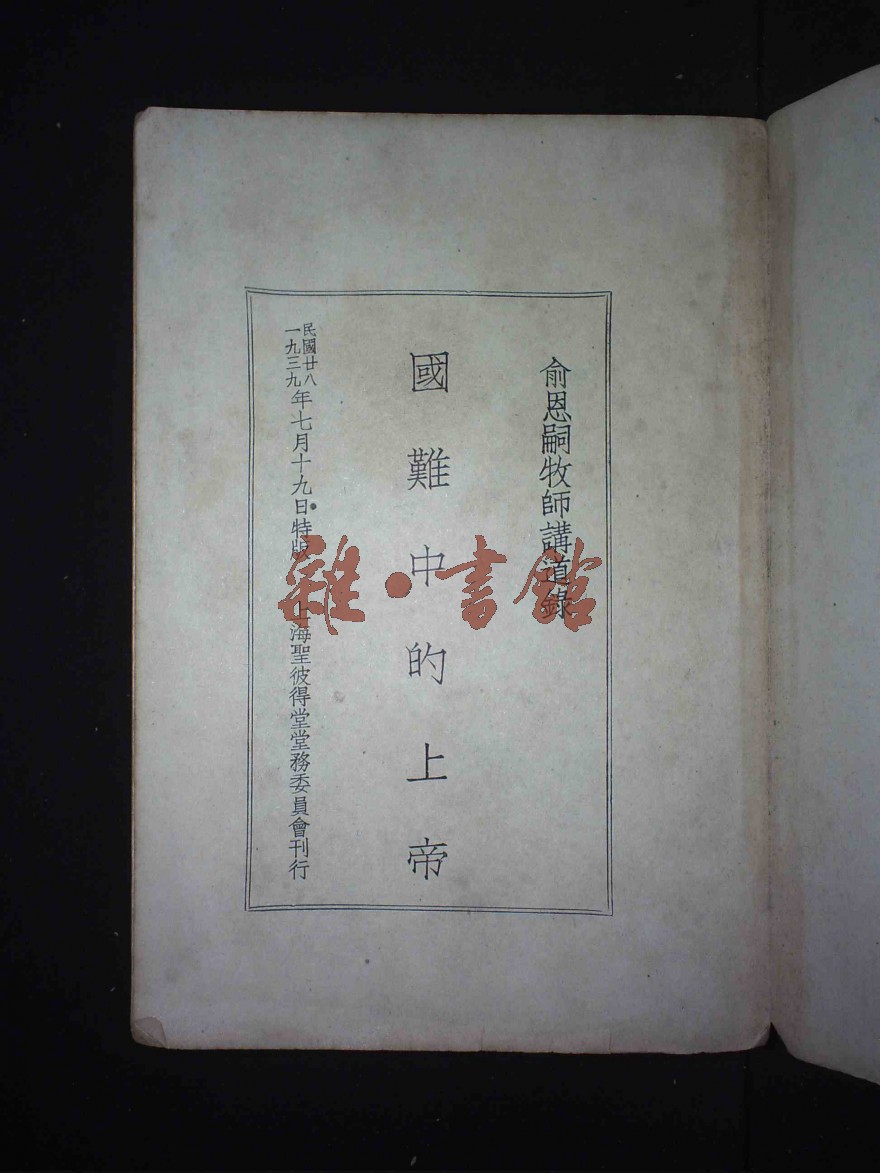 俞恩嗣牧師講道錄
國難中的上帝
民國廿八
一九三九年七月十九日特版 上海聖彼得堂堂務委員會刊行
雜·書館